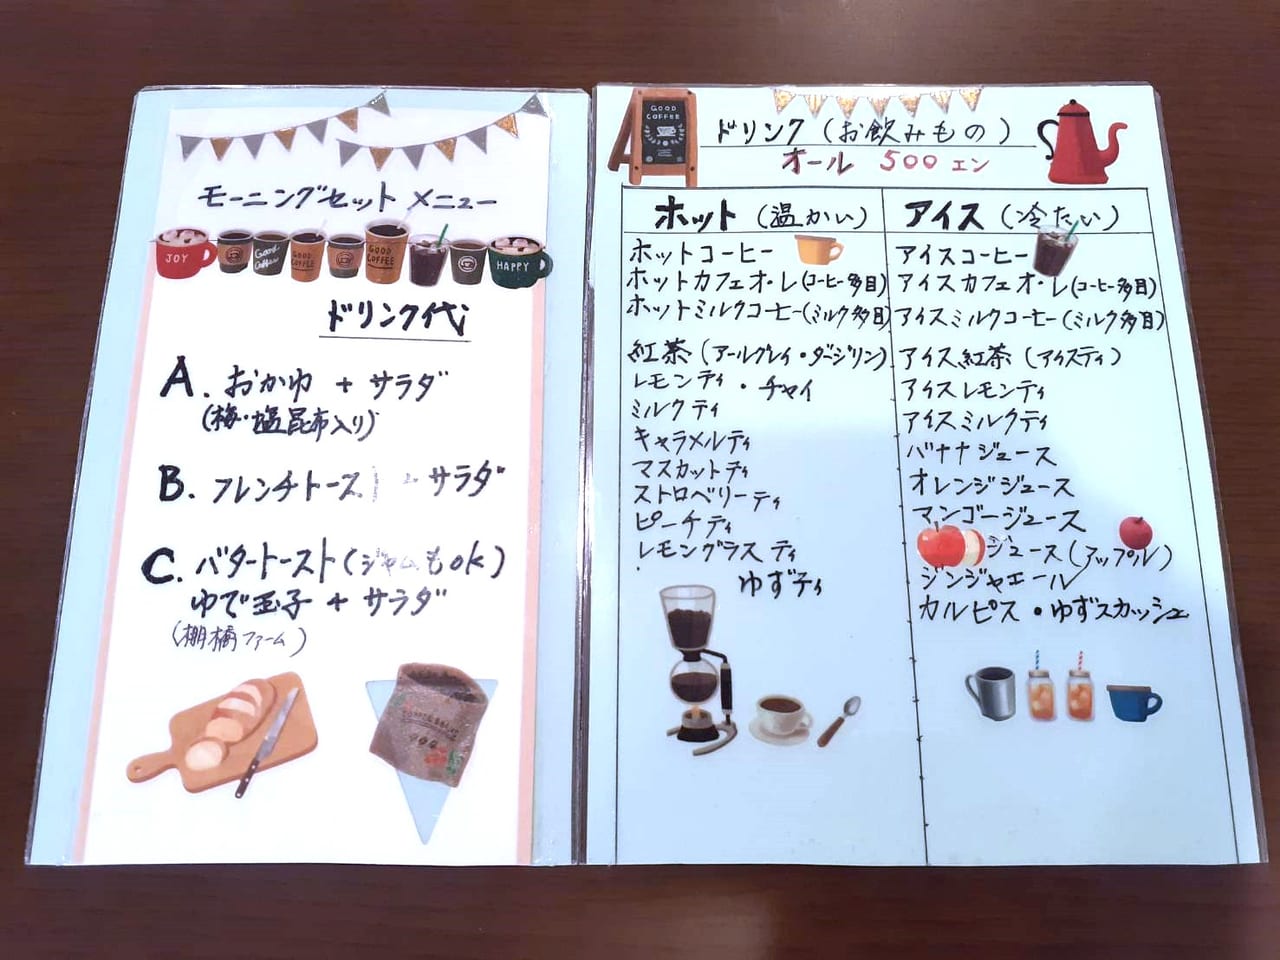 モーニングセット メニュー
JOY
Good Coffee
GOOD COFFEE
GOOD COFFEE
HAPPY
ドリンク代
A. おかゆ + サラダ
(梅・塩昆布入り)
B. フレンチトースト + サラダ
C. バタートースト(ジャムもok)
ゆで玉子 + サラダ
(棚橋ファーム)
GOOD COFFEE
ドリンク(お飲みもの)
オール 500エン
ホット(温かい)
ホットコーヒー
ホットカフェオ・レ(コーヒー多目)
ホットミルクコーヒー(ミルク多目)
紅茶(アールグレイ・ダージリン)
レモンティ・チャイ
ミルクティ
キャラメルティ
マスカットティ
ストロベリーティ
ピーチティ
レモングラスティ
ゆずティ
アイス(冷たい)
アイスコーヒー
アイスカフェオ・レ(コーヒー多目)
アイスミルクコーヒー(ミルク多目)
アイス紅茶(アイスティ)
アイスレモンティ
アイスミルクティ
バナナジュース
オレンジジュース
マンゴージュース
ジュース(アップル)
ジンジャエール
カルピス・ゆずスカッシュ